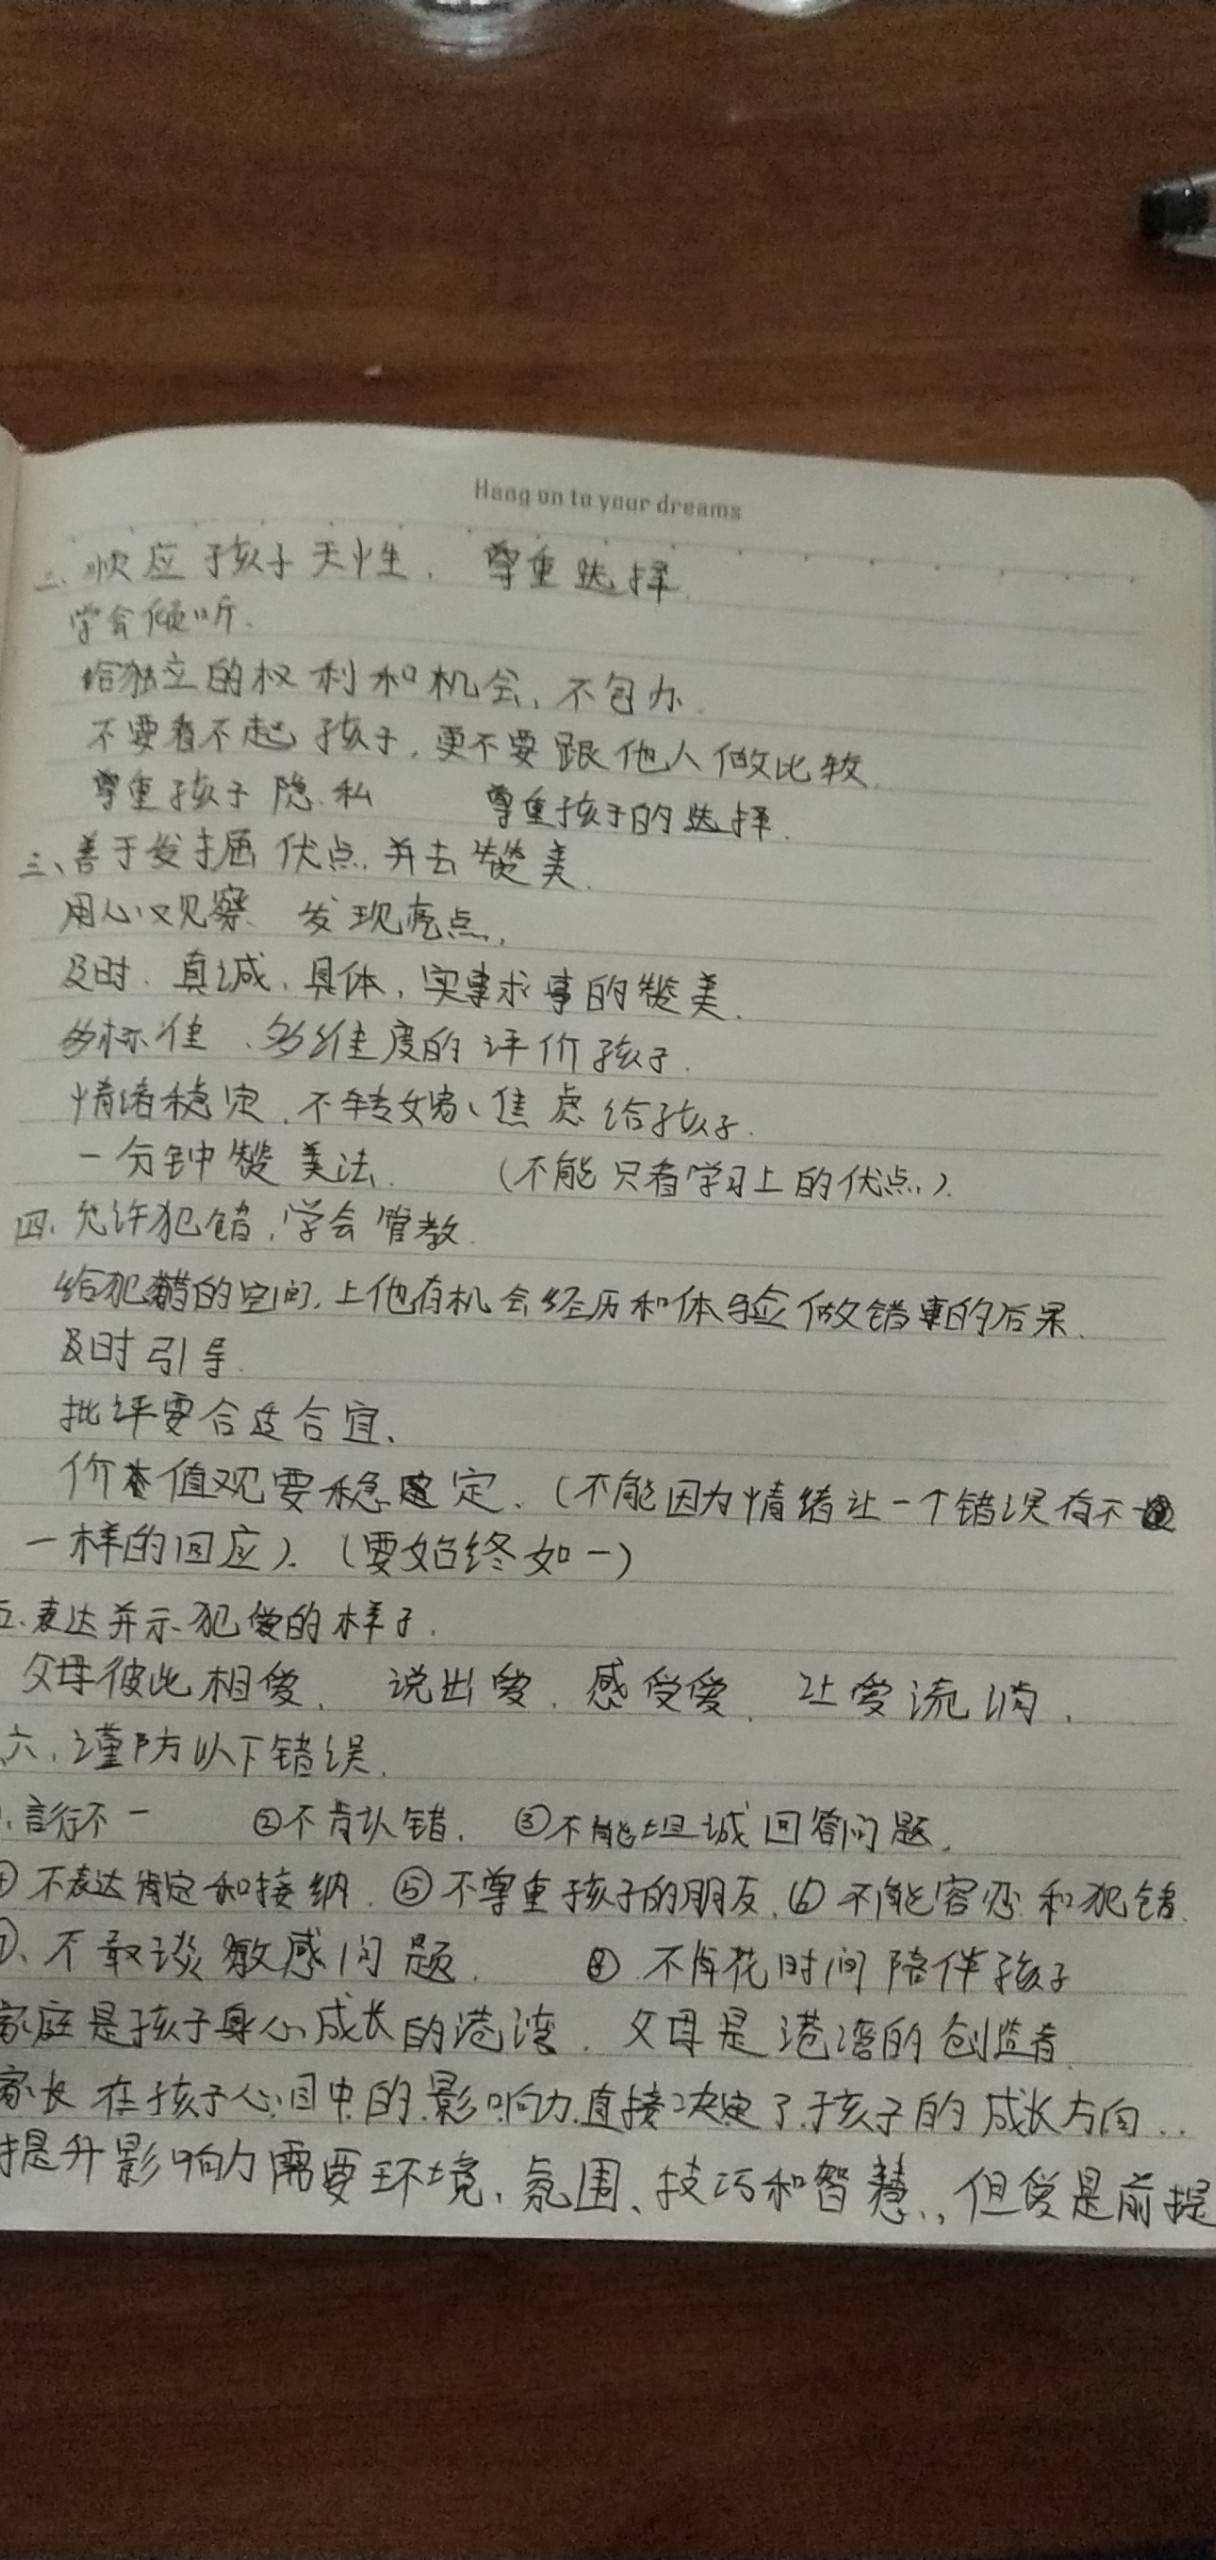 Hang on to your dreams
二、顺应孩子天性，尊重选择.
学会倾听.
给独立的权利和机会，不包办.
不要看不起孩子，更不要跟他人做比较.
尊重孩子隐私 尊重孩子的选择.
三、善于发掘优点，并去赞美.
用心观察 发现亮点，
及时、真诚、具体，实事求事的赞美.
多标准、多维度的评价孩子.
情绪稳定，不转嫁、焦虑给孩子.
一分钟赞美法. （不能只看学习上的优点）.
四、允许犯错，学会管教.
给犯错的空间，上他有机会经历和体验做错事的后果.
及时引导.
批评要合适合宜、
价值观要稳定、（不能因为情绪让一个错误有不
一样的回应）.（要始终如一）
五、表达并示犯爱的样子.
父母彼此相爱、 说出爱、感受爱、让爱流淌，
六、谨防以下错误.
言行不一 ②不肯认错. ③不能坦诚回答问题，
④不表达肯定和接纳. ⑤不尊重孩子的朋友. ⑥不能容忍和犯错.
⑦、不敢谈敏感问题. ⑧、不肯花时间陪伴孩子
家庭是孩子身心成长的港湾，父母是港湾的创造者.
家长在孩子心目中的影响力直接决定了孩子的成长方向..
提升影响力需要环境、氛围、技巧和智慧，但爱是前提